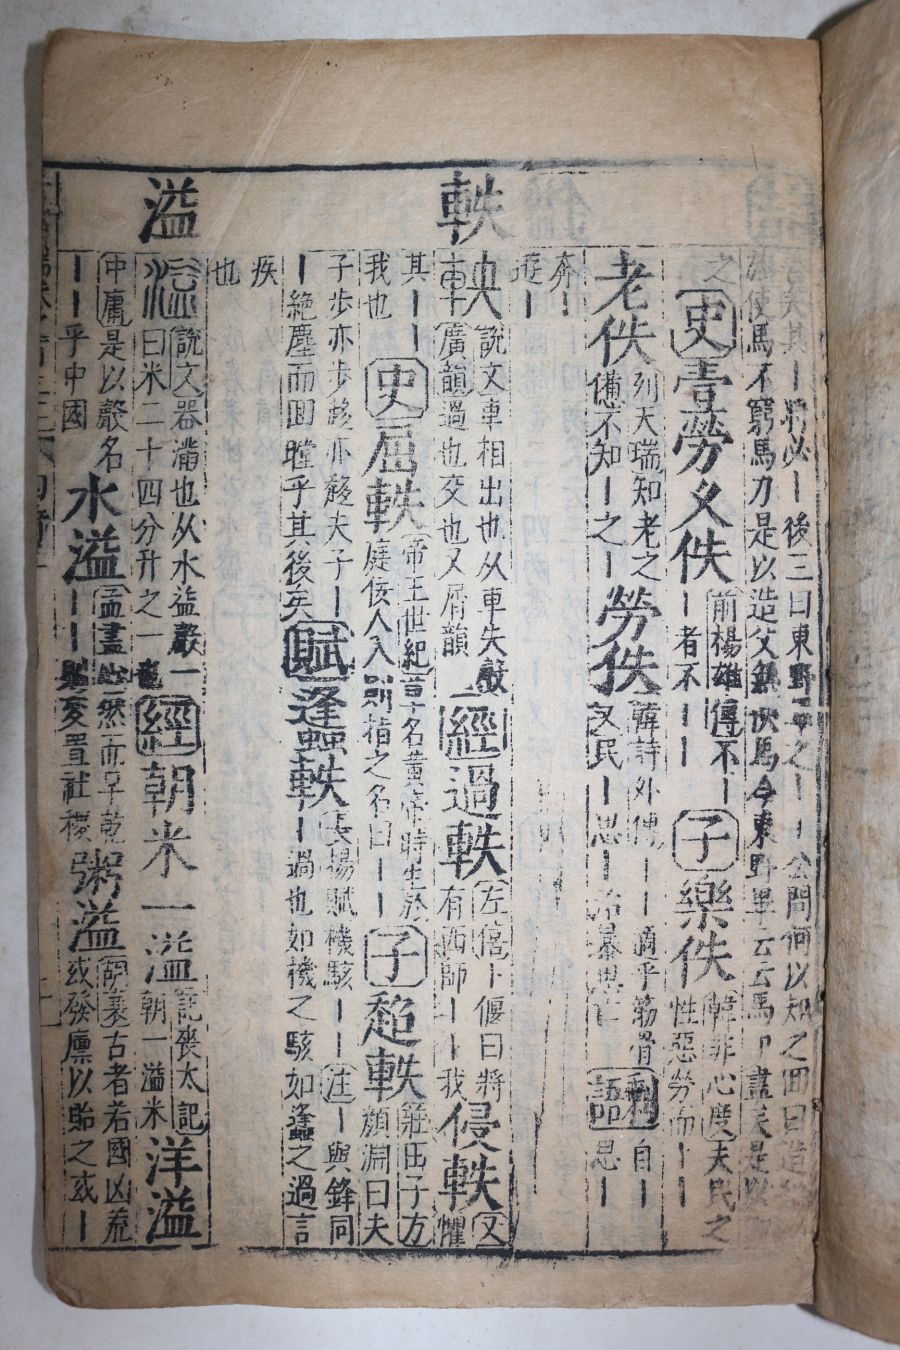 老夫其｜將必｜後三日東野子之｜｜公問何以知之回曰造父
使馬不窮馬力是以造父無佚馬今東野畢云云馬力盡矣是以
之史壹勞久佚前楊雄傳不｜｜者不｜｜子樂佚韓非心度夫民之性惡勞而｜｜
老佚列天瑞知老之憊不知｜之｜勞佚韓詩外傳｜｜適乎筋骨又民｜思｜治暴思
奔｜遊｜
軼
軼說文車相出也从車失聲廣韻過也交也又屑韻經過軼左僖｜偃曰將有西師｜｜我侵軼又懼
其｜｜我也史屈軼帝王世紀黃帝時生於庭佞人入則指之名曰｜｜子超軼莊田子方顏淵曰夫
子步亦步趨亦趨夫子｜｜絕塵而回瞠乎其後矣賦蠭軼長揚賦機駭｜｜注｜與鋒同｜過也如機之駭如蠭之過言
疾也
溢
溢說文器滿也从水益聲一曰米二十四分升之一也經朝米一溢記喪太記朝一溢米洋溢
中庸是以聲名｜｜乎中國水溢孟盡心然而旱乾｜｜則變置社稷粥溢古者若國凶荒或發廩以貽之或｜